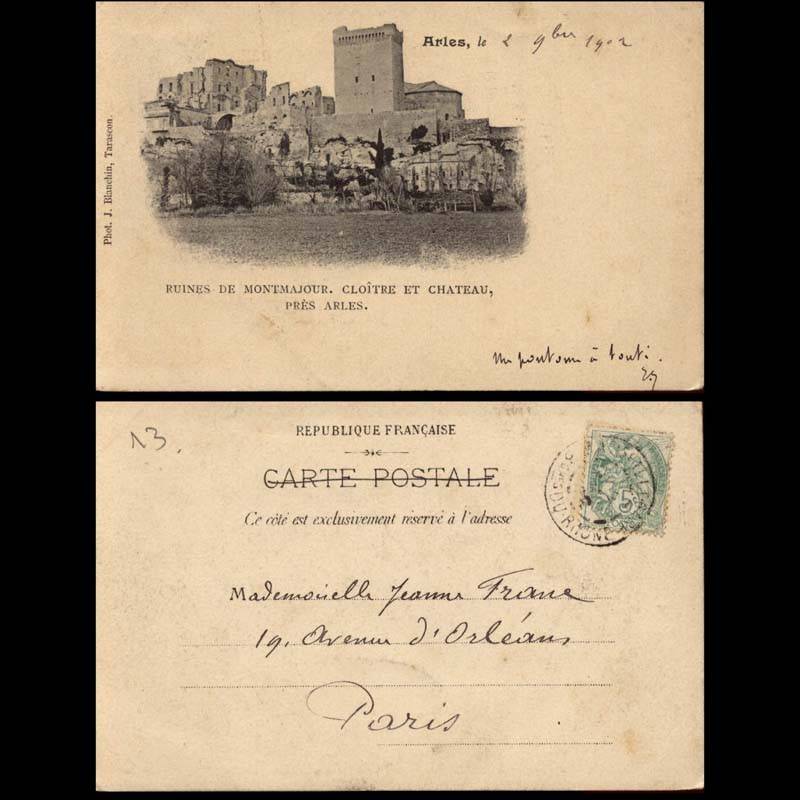 Arles, le 2 9bre 1902
Phot. J. Blanchin, Tarascon.
RUINES DE MONTMAJOUR. CLOÎTRE ET CHATEAU,
PRÈS ARLES.
à
13.
REPUBLIQUE FRANÇAISE
CARTE POSTALE
Ce côté est exclusivement réservé à l'adresse
5
RHONE
Mademoiselle Jeanne Franc
19, Avenue d'Orléans
Paris